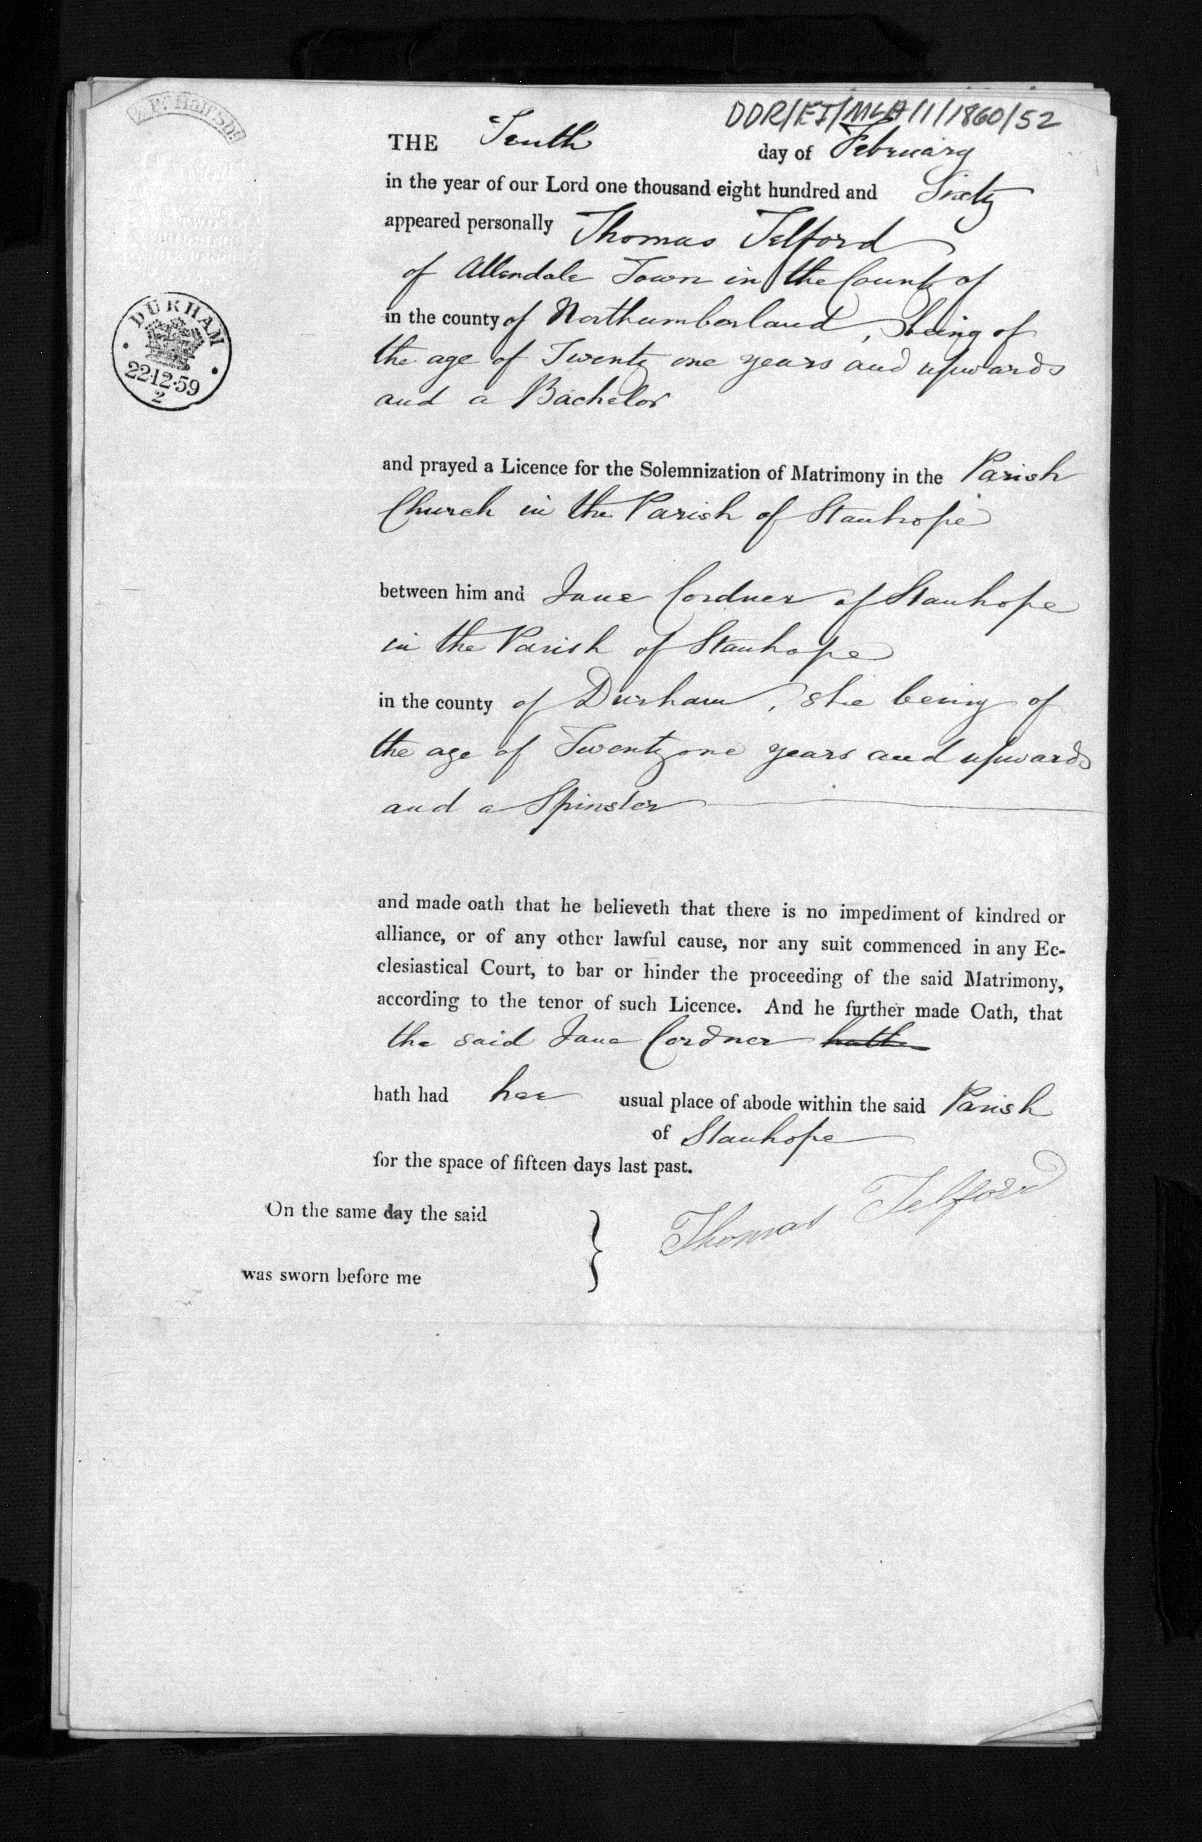 DDR/EJ/MLA/1/1860/52
THE Tenth day of February
in the year of our Lord one thousand eight hundred and Sixty
appeared personally Thomas Telford
of Allendale Town in the County of
in the county of Northumberland, being of
the age of Twenty one years and upwards
and a Bachelor
DURHAM
22·12·59
2
and prayed a Licence for the Solemnization of Matrimony in the Parish
Church in the Parish of Stanhope
between him and Jane Cordner of Stanhope
in the Parish of Stanhope
in the county of Durham, she being of
the age of Twenty one years and upwards
and a Spinster
and made oath that he believeth that there is no impediment of kindred or
alliance, or of any other lawful cause, nor any suit commenced in any Ec-
clesiastical Court, to bar or hinder the proceeding of the said Matrimony,
according to the tenor of such Licence. And he further made Oath, that
the said Jane Cordner hath
hath had her usual place of abode within the said Parish
of Stanhope
for the space of fifteen days last past.
On the same day the said
Thomas Telford
was sworn before me